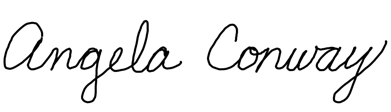 Angela Conway